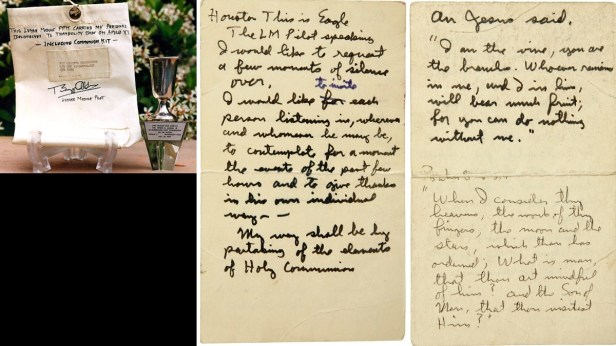 THIS LUNAR MODULE PPK CARRIED MY PERSONAL
TO TRANQUILITY BASE ON APOLLO XI
- INCLUDING COMMUNION KIT -
LUNAR MODULE PILOT
Houston This is Eagle
The LM Pilot speaking
I would like to request
a few moments of silence
over. to invite
I would like for each
person listening in, wherever
and whomever he may be,
to contemplate for a moment
the events of the past few
hours and to give thanks
in his own individual
way - -
My way shall be by
partaking of the elements
of Holy Communion
Jesus said,
"I am the vine, you are
the branches. Whoever remains
in me, and I in him,
will bear much fruit;
for you can do nothing
without me."
"When I consider thy
heavens, the work of thy
fingers, the moon and the
stars, which thou has
ordained; What is man,
that thou art mindful
of him? and the Son of
Man, that thou visitest
Him?"